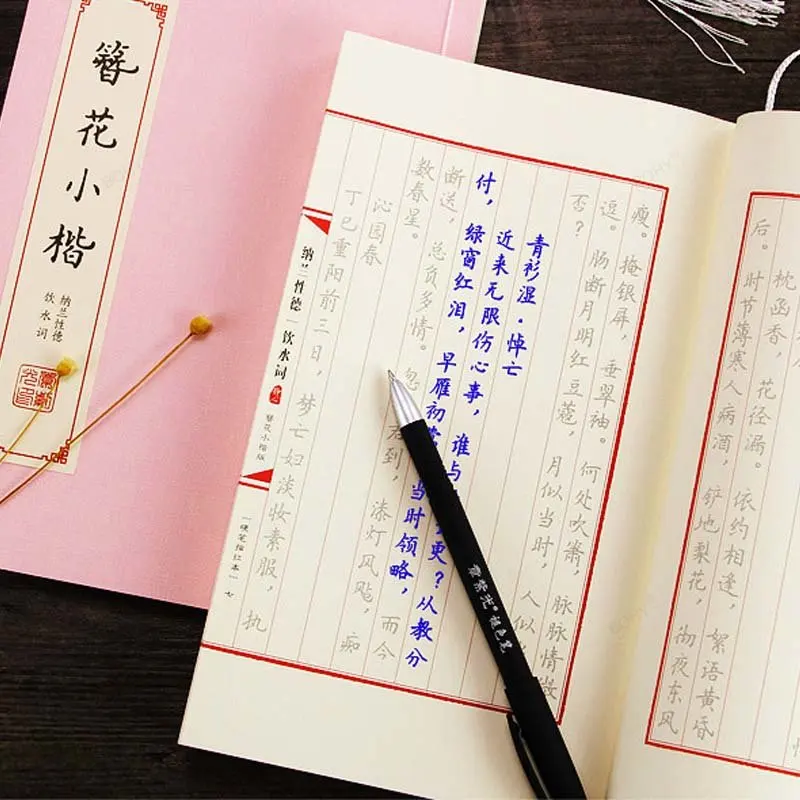 簪花小楷
纳兰性德
饮水词
枕函香，花径漏。依约相逢，絮语黄昏
后。时节薄寒人病酒，铲地梨花，彻夜东风
瘦。掩银屏，垂翠袖。何处吹箫，脉脉情微
逗。肠断月明红豆蔻，月似当时，人似
否？
青衫湿·悼亡
近来无限伤心事，谁与更？从教分
付，绿窗红泪，早雁初当时领略，而今
断送，总负多情。忽君到，漆灯风飐，痴
数春星。
沁园春
丁巳重阳前三日，梦亡妇淡妆素服，执
纳兰性德｜饮水词
簪花小楷版
「硬笔描红本」七
紫光® 褪色笔